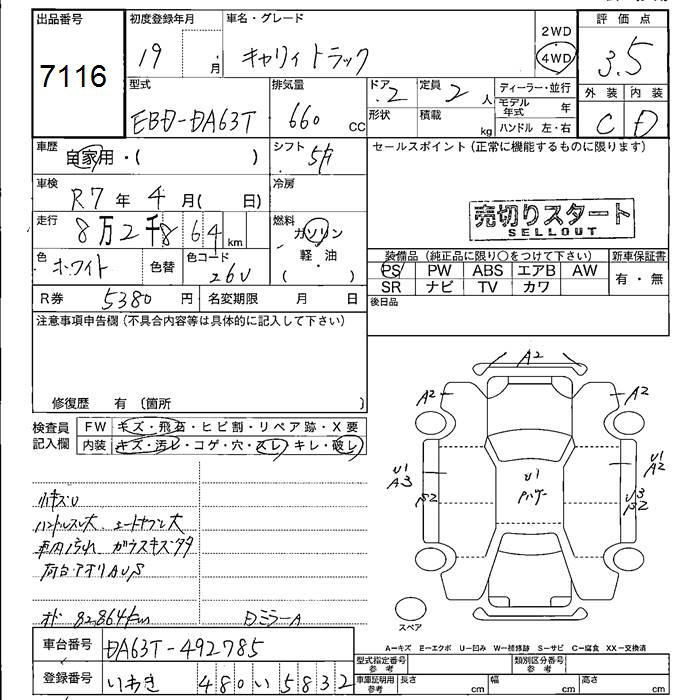 出品番号 7116
初度登録年月 19 月
車名・グレード キャリィトラック
2WD
4WD
評価点 3.5
外装 内装
C D
型式 EBD-DA63T
排気量 660 CC
ドア 2
定員 2 人
形状
積載 kg
ディーラー・並行
モデル年式 年
ハンドル 左・右
車歴 自家用・( )
シフト 5F
セールスポイント(正常に機能するものに限ります)
売切りスタート
SELLOUT
車検 R7 年 4 月( 日)
冷房
走行 8万2千864 km
燃料 ガソリン
軽・油
( )
色 ホワイト
色替
色コード 26U
装備品(純正品に限り○をつけて下さい) 新車保証書
PS PW ABS エアB AW 有・無
SR ナビ TV カワ
R券 5380 円
名変期限 月 日
後日品
注意事項申告欄(不具合内容等は具体的に記入して下さい)
修復歴 有 〔箇所 〕
検査員記入欄
FW キズ・飛石・ヒビ割・リペア跡・X要
内装 キズ・汚レ・コゲ・穴・スレ・キレ・破レ
小キズU
ハンドルスレ大
車内汚れ ガラスキズ
荷台・アオリAUS
オド 82,864km
DミラーA
A2
A2 A2
U1 A3
B2
U1
U1 A2
U3 B2
スペア
A-キズ E-エクボ U-凹み W-補修跡 S-サビ C-腐食 XX-交換済
車台番号 DA63T-492785
登録番号 いわき 480 い 5832
型式指定番号 参考
類別区分番号 参考
車庫証明用 参考
長さ cm
幅 cm
高さ cm